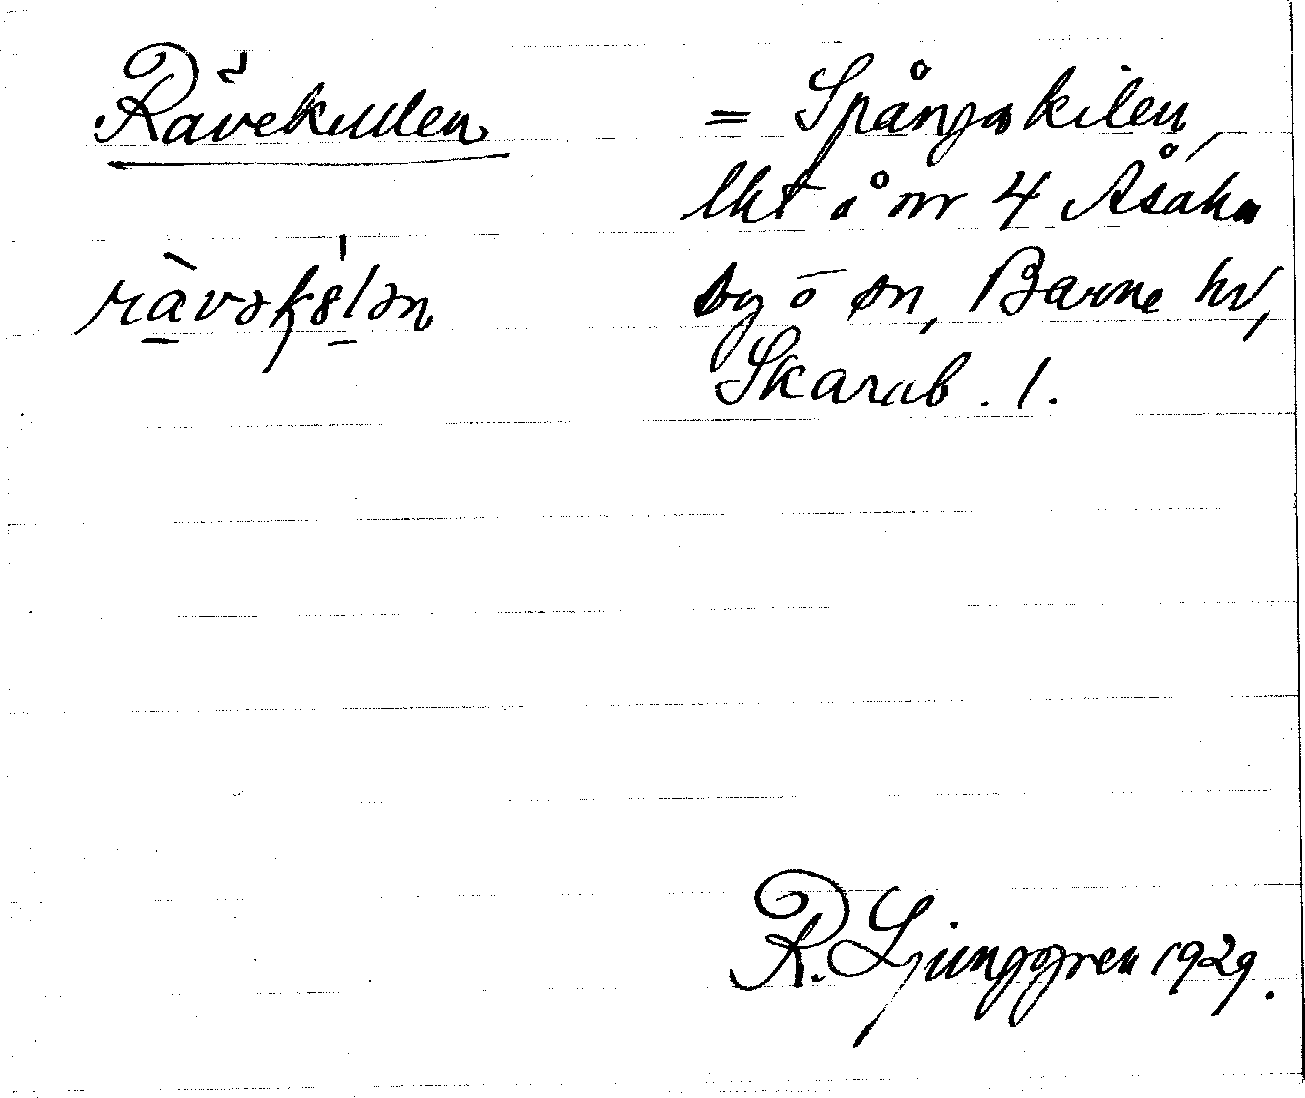 Rävekullen
rävəkələn
= Spångakilen,
lht å nr 4 Åsaka
by o sn, Barne hd,
Skarab. l.
R. Ljunggren 1929.